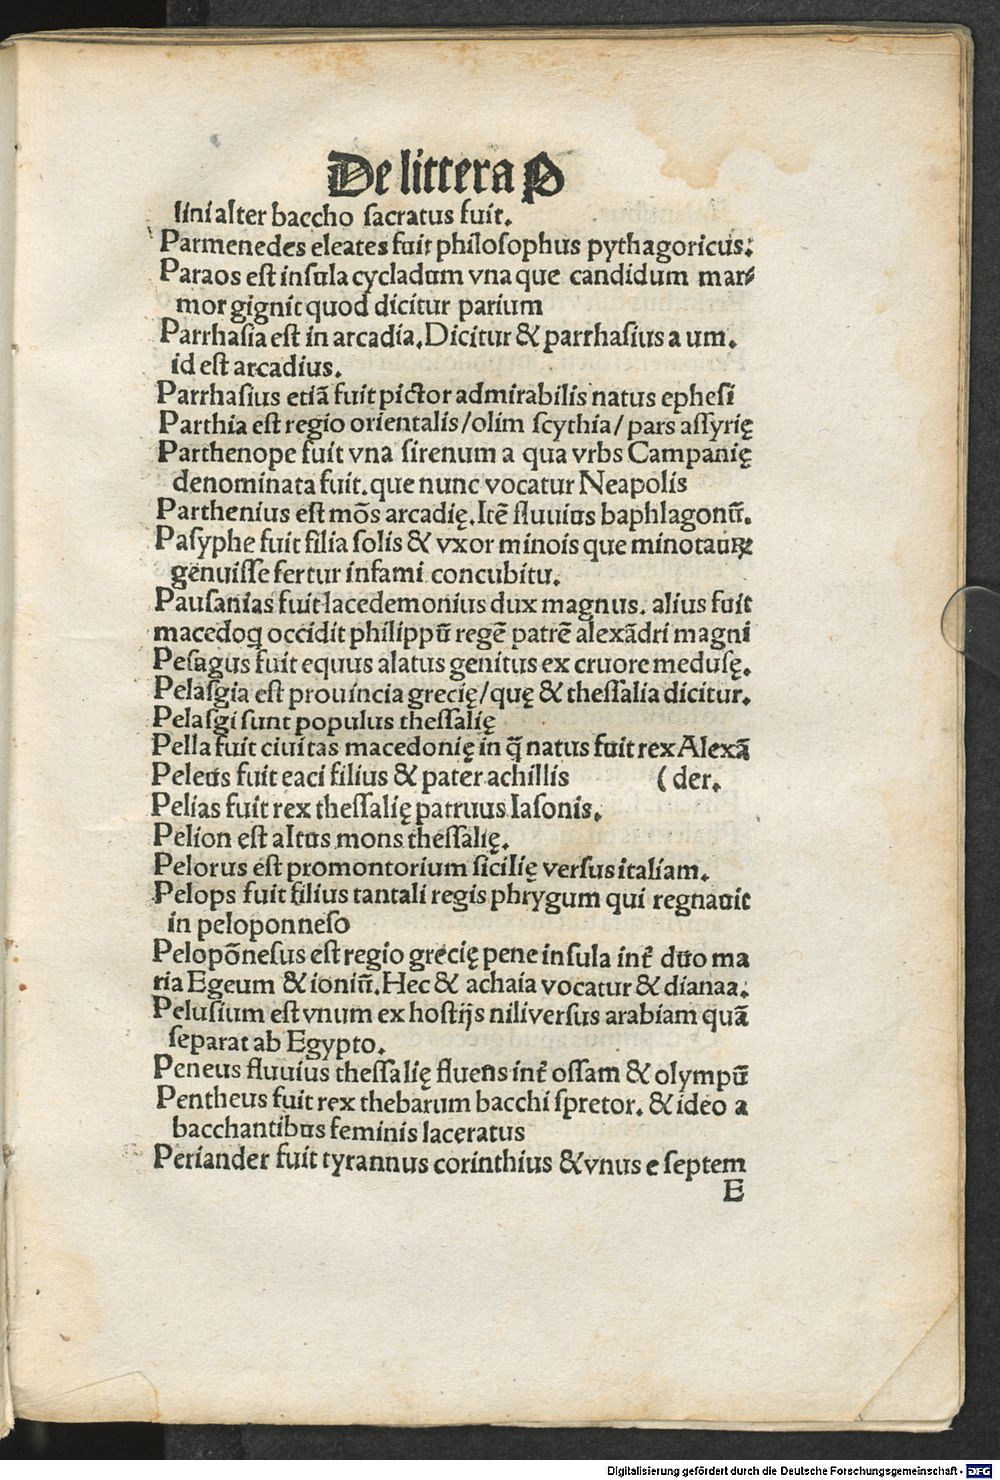 De littera P
lini alter baccho sacratus fuit.
Parmenedes eleates fuit philosophus pythagoricus:
Paraos est insula cycladum vna que candidum mar⸗
mor gignit quod dicitur parium
Parrhasia est in arcadia. Dicitur & parrhasius a um.
id est arcadius.
Parrhasius etiã fuit pictor admirabilis natus ephesi
Parthia est regio orientalis/olim scythia/pars assyrię
Parthenope fuit vna sirenum a qua vrbs Campanię
denominata fuit. que nunc vocatur Neapolis
Parthenius est mõs arcadię. Itẽ fluuius baphlagonũ.
Pasyphe fuit filia solis & vxor minois que minotauꝝ
genuisse fertur infami concubitu.
Pausanias fuit lacedemonius dux magnus. alius fuit
macedoq̨ occidit philippũ regẽ patrẽ alexãdri magni
Pesagus fuit equus alatus genitus ex cruore medusę.
Pelasgia est prouincia grecię/quę & thessalia dicitur.
Pelasgi sunt populus thessalię
Pella fuit ciuitas macedonię in q̃ natus fuit rex Alexã
Peleus fuit eaci filius & pater achillis (der.
Pelias fuit rex thessalię patruus Iasonis.
Pelion est altus mons thessalię.
Pelorus est promontorium sicilię versus italiam.
Pelops fuit filius tantali regis phrygum qui regnauit
in peloponneso
Pelopõnesus est regio grecię pene insula int̃ duo ma
ria Egeum & ioniũ. Hec & achaia vocatur & dianaa.
Pelusium est vnum ex hostijs nili versus arabiam quã
separat ab Egypto.
Peneus fluuius thessalię fluens int̃ ossam & olympũ
Pentheus fuit rex thebarum bacchi spretor. & ideo a
bacchantibus feminis laceratus
Periander fuit tyrannus corinthius & vnus e septem
E
Digitalisierung gefördert durch die Deutsche Forschungsgemeinschaft - DFG